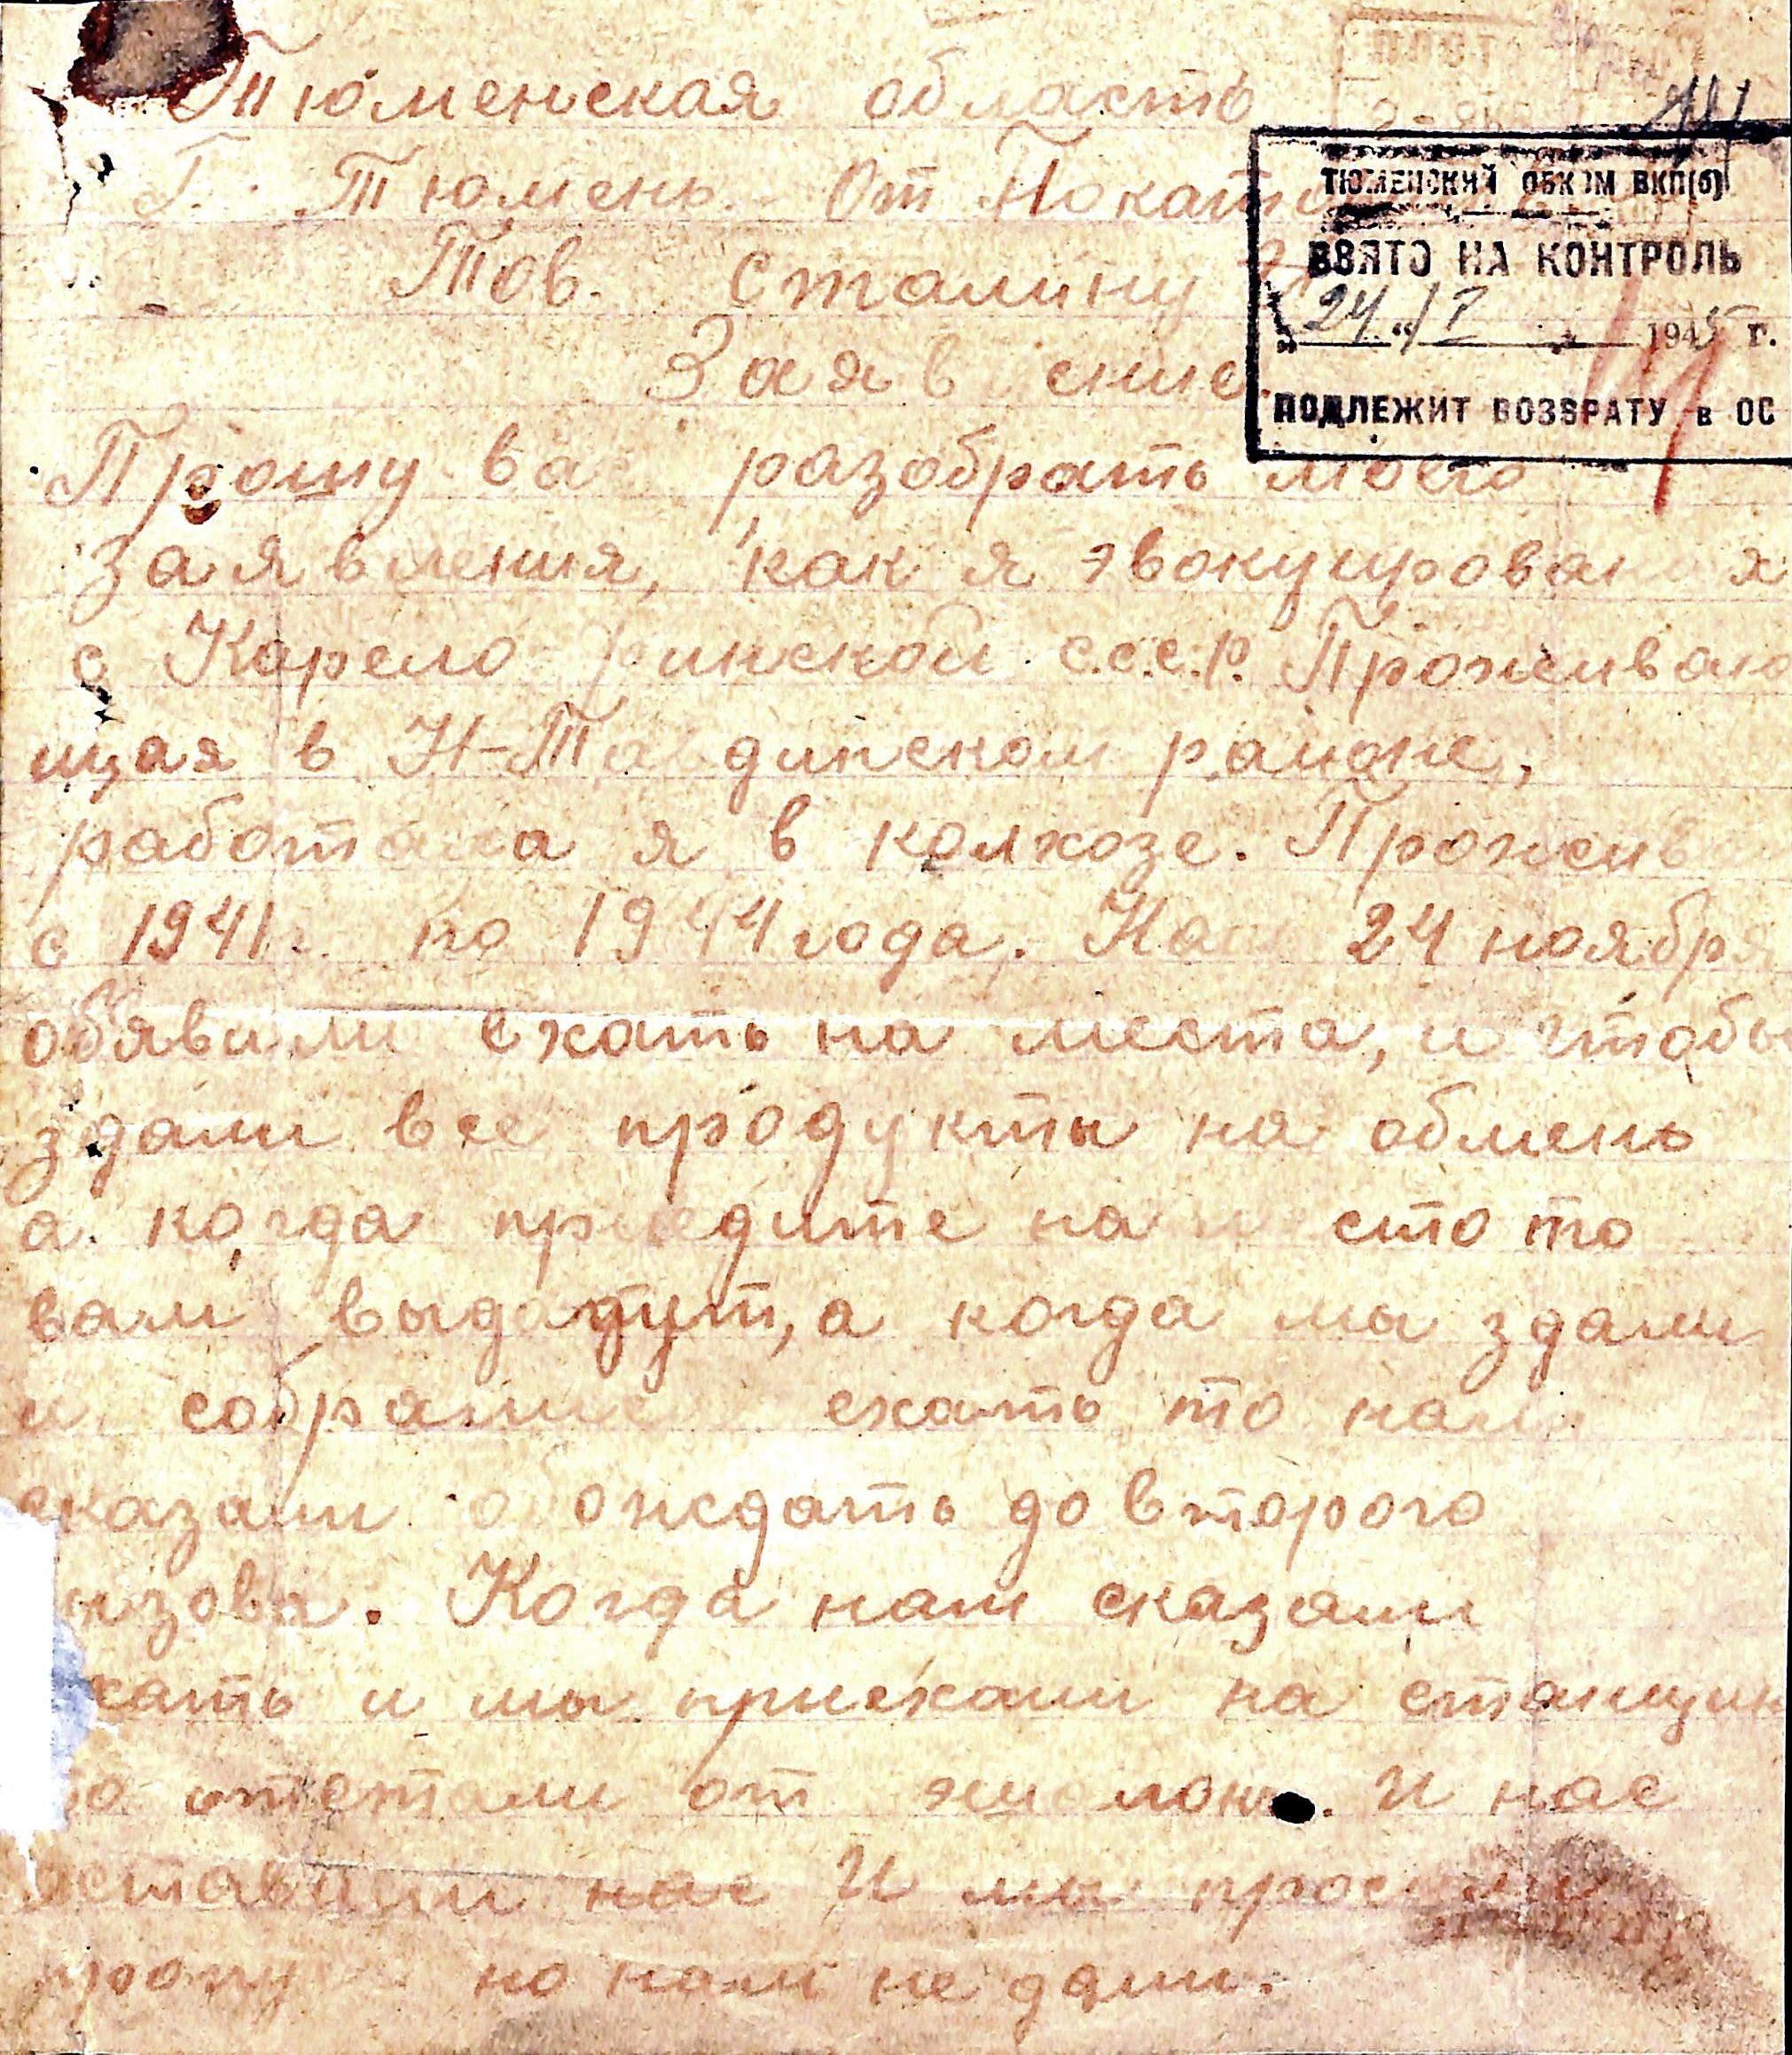 Тюменская область
Г. Тюмень. От
Тов. Сталину
Заявление.
ТЮМЕНСКИЙ ОБКОМ ВКП(б)
ВЗЯТО НА КОНТРОЛЬ
„24“ I 1945 г.
ПОДЛЕЖИТ ВОЗВРАТУ в ОС
Прошу вас разобрать моего
заявления, как я эвокуирована я
с Карело финской с.с.с.р. Прожива
щая в Н-Тавдинском районе,
работала я в колхозе.
с 1941г. по 1944 года. 24 ноября
обявили ехать на места, и чтобы
здали все продукты на обмень
а. когда приедите на место то
вам выдадут, а когда мы здали
и собралис ехать то нам
сказали обождать до второго
Когда нам сказали
хать и мы приехали на станцию
от эшалона. И нас
оставили нас И мы просили
но нам не дали.